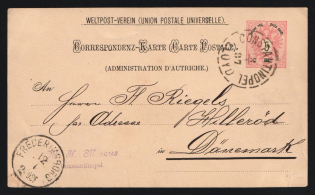 WELTPOST-VEREIN (UNION POSTALE UNIVERSELLE)
CORRESPONDENZ-KARTE (CARTE POSTALE)
(ADMINISTRATION D'AUTRICHE.)
CONSTANTINOPEL
An
Herrn Fr. Riegels
per Adresse Hillerød
in Dänemark
FREDERIKSBORG
12